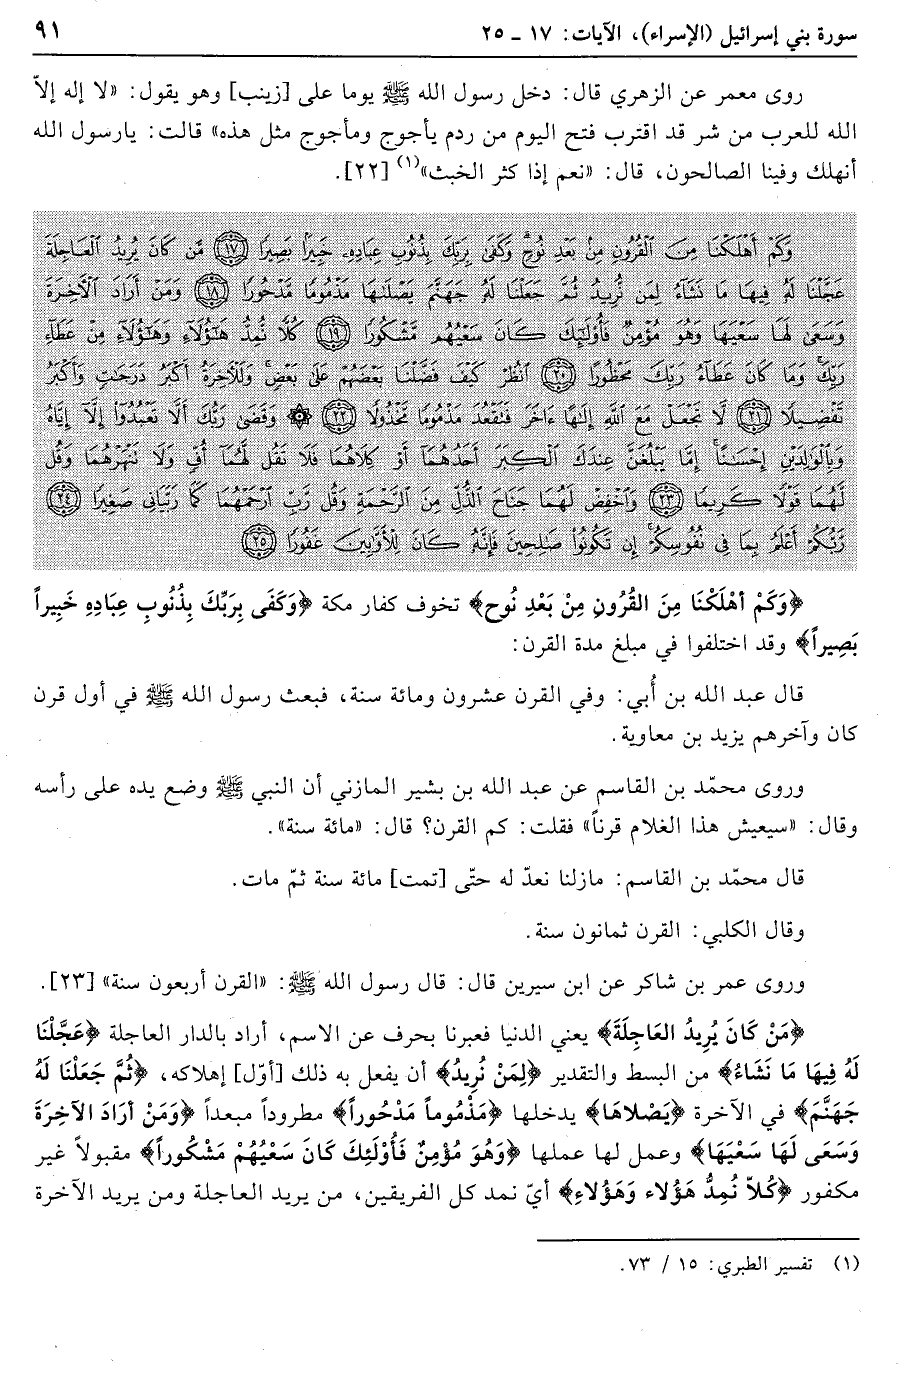 سورة بني إسرائيل (الإسراء)، الآيات: ١٧ ـ ٢٥ ٩١
روى معمر عن الزهري قال: دخل رسول الله ﷺ يوما على [زينب] وهو يقول: «لا إله إلاّ
الله للعرب من شر قد اقترب فتح اليوم من ردم يأجوج ومأجوج مثل هذه» قالت: يارسول الله
أنهلك وفينا الصالحون، قال: «نعم إذا كثر الخبث»(١) [٢٢].
وَكَمْ أَهْلَكْنَا مِنَ ٱلْقُرُونِ مِنْ بَعْدِ نُوحٍ وَكَفَىٰ بِرَبِّكَ بِذُنُوبِ عِبَادِهِۦ خَبِيرًۢا بَصِيرًا ﴿١٧﴾ مَّن كَانَ يُرِيدُ ٱلْعَاجِلَةَ
عَجَّلْنَا لَهُۥ فِيهَا مَا نَشَآءُ لِمَن نُّرِيدُ ثُمَّ جَعَلْنَا لَهُۥ جَهَنَّمَ يَصْلَىٰهَا مَذْمُومًا مَّدْحُورًا ﴿١٨﴾ وَمَنْ أَرَادَ ٱلْأَخِرَةَ
وَسَعَىٰ لَهَا سَعْيَهَا وَهُوَ مُؤْمِنٌ فَأُوْلَٰٓئِكَ كَانَ سَعْيُهُم مَّشْكُورًا ﴿١٩﴾ كُلًّا نُّمِدُّ هَٰٓؤُلَآءِ وَهَٰٓؤُلَآءِ مِنْ عَطَآءِ
رَبِّكَ وَمَا كَانَ عَطَآءُ رَبِّكَ مَحْظُورًا ﴿٢٠﴾ ٱنظُرْ كَيْفَ فَضَّلْنَا بَعْضَهُمْ عَلَىٰ بَعْضٍ وَلَلْأَخِرَةُ أَكْبَرُ دَرَجَٰتٍ وَأَكْبَرُ
تَفْضِيلًا ﴿٢١﴾ لَّا تَجْعَلْ مَعَ ٱللَّهِ إِلَٰهًا ءَاخَرَ فَتَقْعُدَ مَذْمُومًا مَّخْذُولًا ﴿٢٢﴾ ۞ وَقَضَىٰ رَبُّكَ أَلَّا تَعْبُدُوٓاْ إِلَّآ إِيَّاهُ
وَبِٱلْوَٰلِدَيْنِ إِحْسَٰنًا إِمَّا يَبْلُغَنَّ عِندَكَ ٱلْكِبَرَ أَحَدُهُمَآ أَوْ كِلَاهُمَا فَلَا تَقُل لَّهُمَآ أُفٍّ وَلَا نَنْهَرْهُمَا وَقُل
لَّهُمَا قَوْلًا كَرِيمًا ﴿٢٣﴾ وَٱخْفِضْ لَهُمَا جَنَاحَ ٱلذُّلِّ مِنَ ٱلرَّحْمَةِ وَقُل رَّبِّ ٱرْحَمْهُمَا كَمَا رَبَّيَانِى صَغِيرًا ﴿٢٤﴾
رَّبُّكُمْ أَعْلَمُ بِمَا فِى نُفُوسِكُمْ إِن تَكُونُواْ صَٰلِحِينَ فَإِنَّهُۥ كَانَ لِلْأَوَّٰبِينَ غَفُورًا ﴿٢٥﴾
﴿وَكَمْ أهْلَكْنَا مِنَ القُرُونِ مِنْ بَعْدِ نُوح﴾ تخوف كفار مكة ﴿وَكَفَى بِرَبِّكَ بِذُنُوبِ عِبَادِهِ خَبِيراً
بَصِيراً﴾ وقد اختلفوا في مبلغ مدة القرن:
قال عبد الله بن أُبي: وفي القرن عشرون ومائة سنة، فبعث رسول الله ﷺ في أول قرن
كان وآخرهم يزيد بن معاوية.
وروى محمّد بن القاسم عن عبد الله بن بشير المازني أن النبي ﷺ وضع يده على رأسه
وقال: «سيعيش هذا الغلام قرناً» فقلت: كم القرن؟ قال: «مائة سنة».
قال محمّد بن القاسم: مازلنا نعدّ له حتّى [تمت] مائة سنة ثمّ مات.
وقال الكلبي: القرن ثمانون سنة.
وروى عمر بن شاكر عن ابن سيرين قال: قال رسول الله ﷺ: «القرن أربعون سنة» [٢٣].
﴿مَنْ كَانَ يُرِيدُ العَاجِلَةَ﴾ يعني الدنيا فعبرنا بحرف عن الاسم، أراد بالدار العاجلة ﴿عَجَّلْنَا
لَهُ فِيهَا مَا نَشَاءُ﴾ من البسط والتقدير ﴿لِمَنْ نُرِيدُ﴾ أن يفعل به ذلك [أوّل] إهلاكه، ﴿ثُمَّ جَعَلْنَا لَهُ
جَهَنَّمَ﴾ في الآخرة ﴿يَصْلاهَا﴾ يدخلها ﴿مَذْمُوماً مَدْحُوراً﴾ مطروداً مبعداً ﴿وَمَنْ أرَادَ الآخِرَةَ
وَسَعَى لَهَا سَعْيَهَا﴾ وعمل لها عملها ﴿وَهُوَ مُؤْمِنٌ فَأُوْلَئِكَ كَانَ سَعْيُهُمْ مَشْكُوراً﴾ مقبولاً غير
مكفور ﴿كُلاّ نُمِدُّ هَؤُلاء وَهَؤُلاءِ﴾ أيّ نمد كل الفريقين، من يريد العاجلة ومن يريد الآخرة
(١) تفسير الطبري: ١٥ / ٧٣.